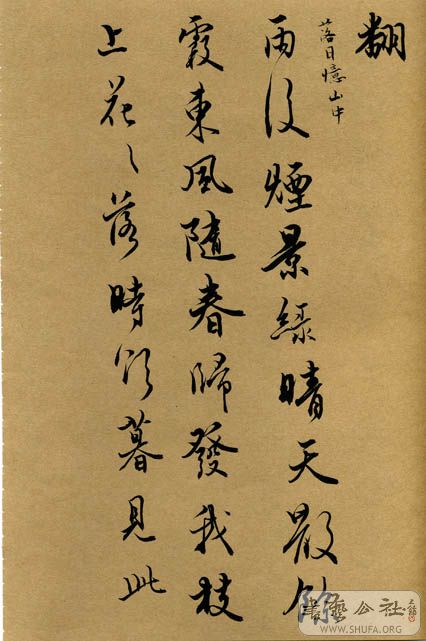 翻
落日憶山中
雨後煙景綠晴天散餘
霞東風隨春歸發我枝
上花〻落時欲暮見此
書藝公社
WWW.SHUFA.ORG